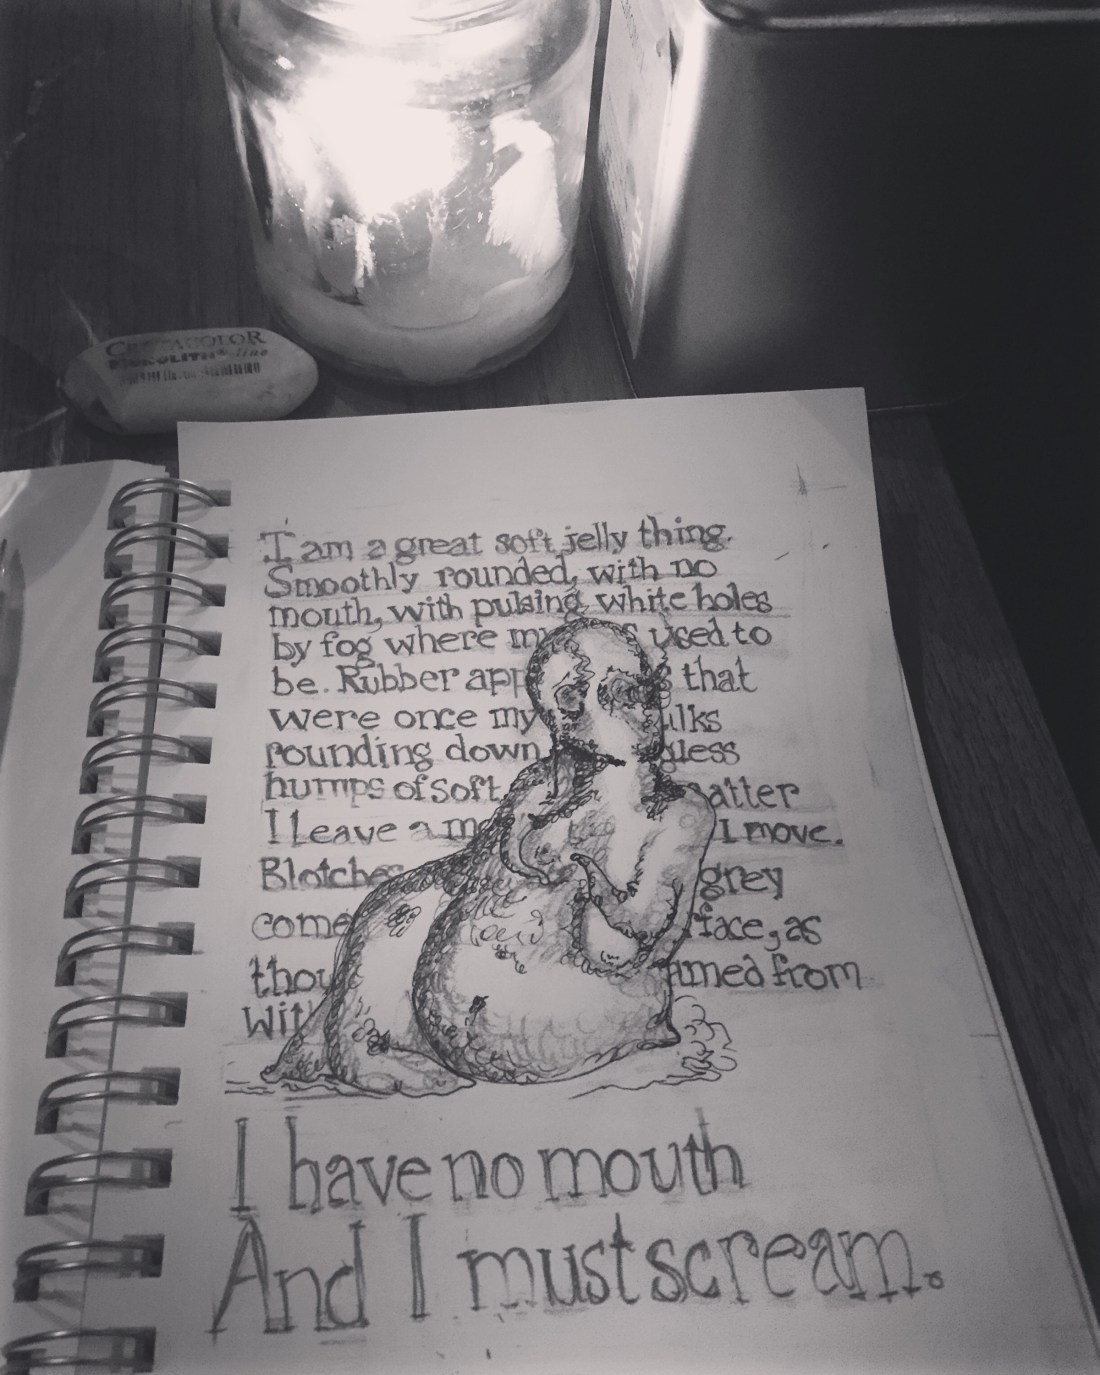 CRETACOLOR
MONOLITH line
I am a great soft jelly thing.
Smoothly rounded, with no
mouth, with pulsing white holes
by fog where my used to
be. Rubber app that
were once my ulks
rounding down gless
humps of soft matter
I Leave a mo I move.
Blotches grey
come face, as
thou amed from
With
I have no mouth
And I must scream.